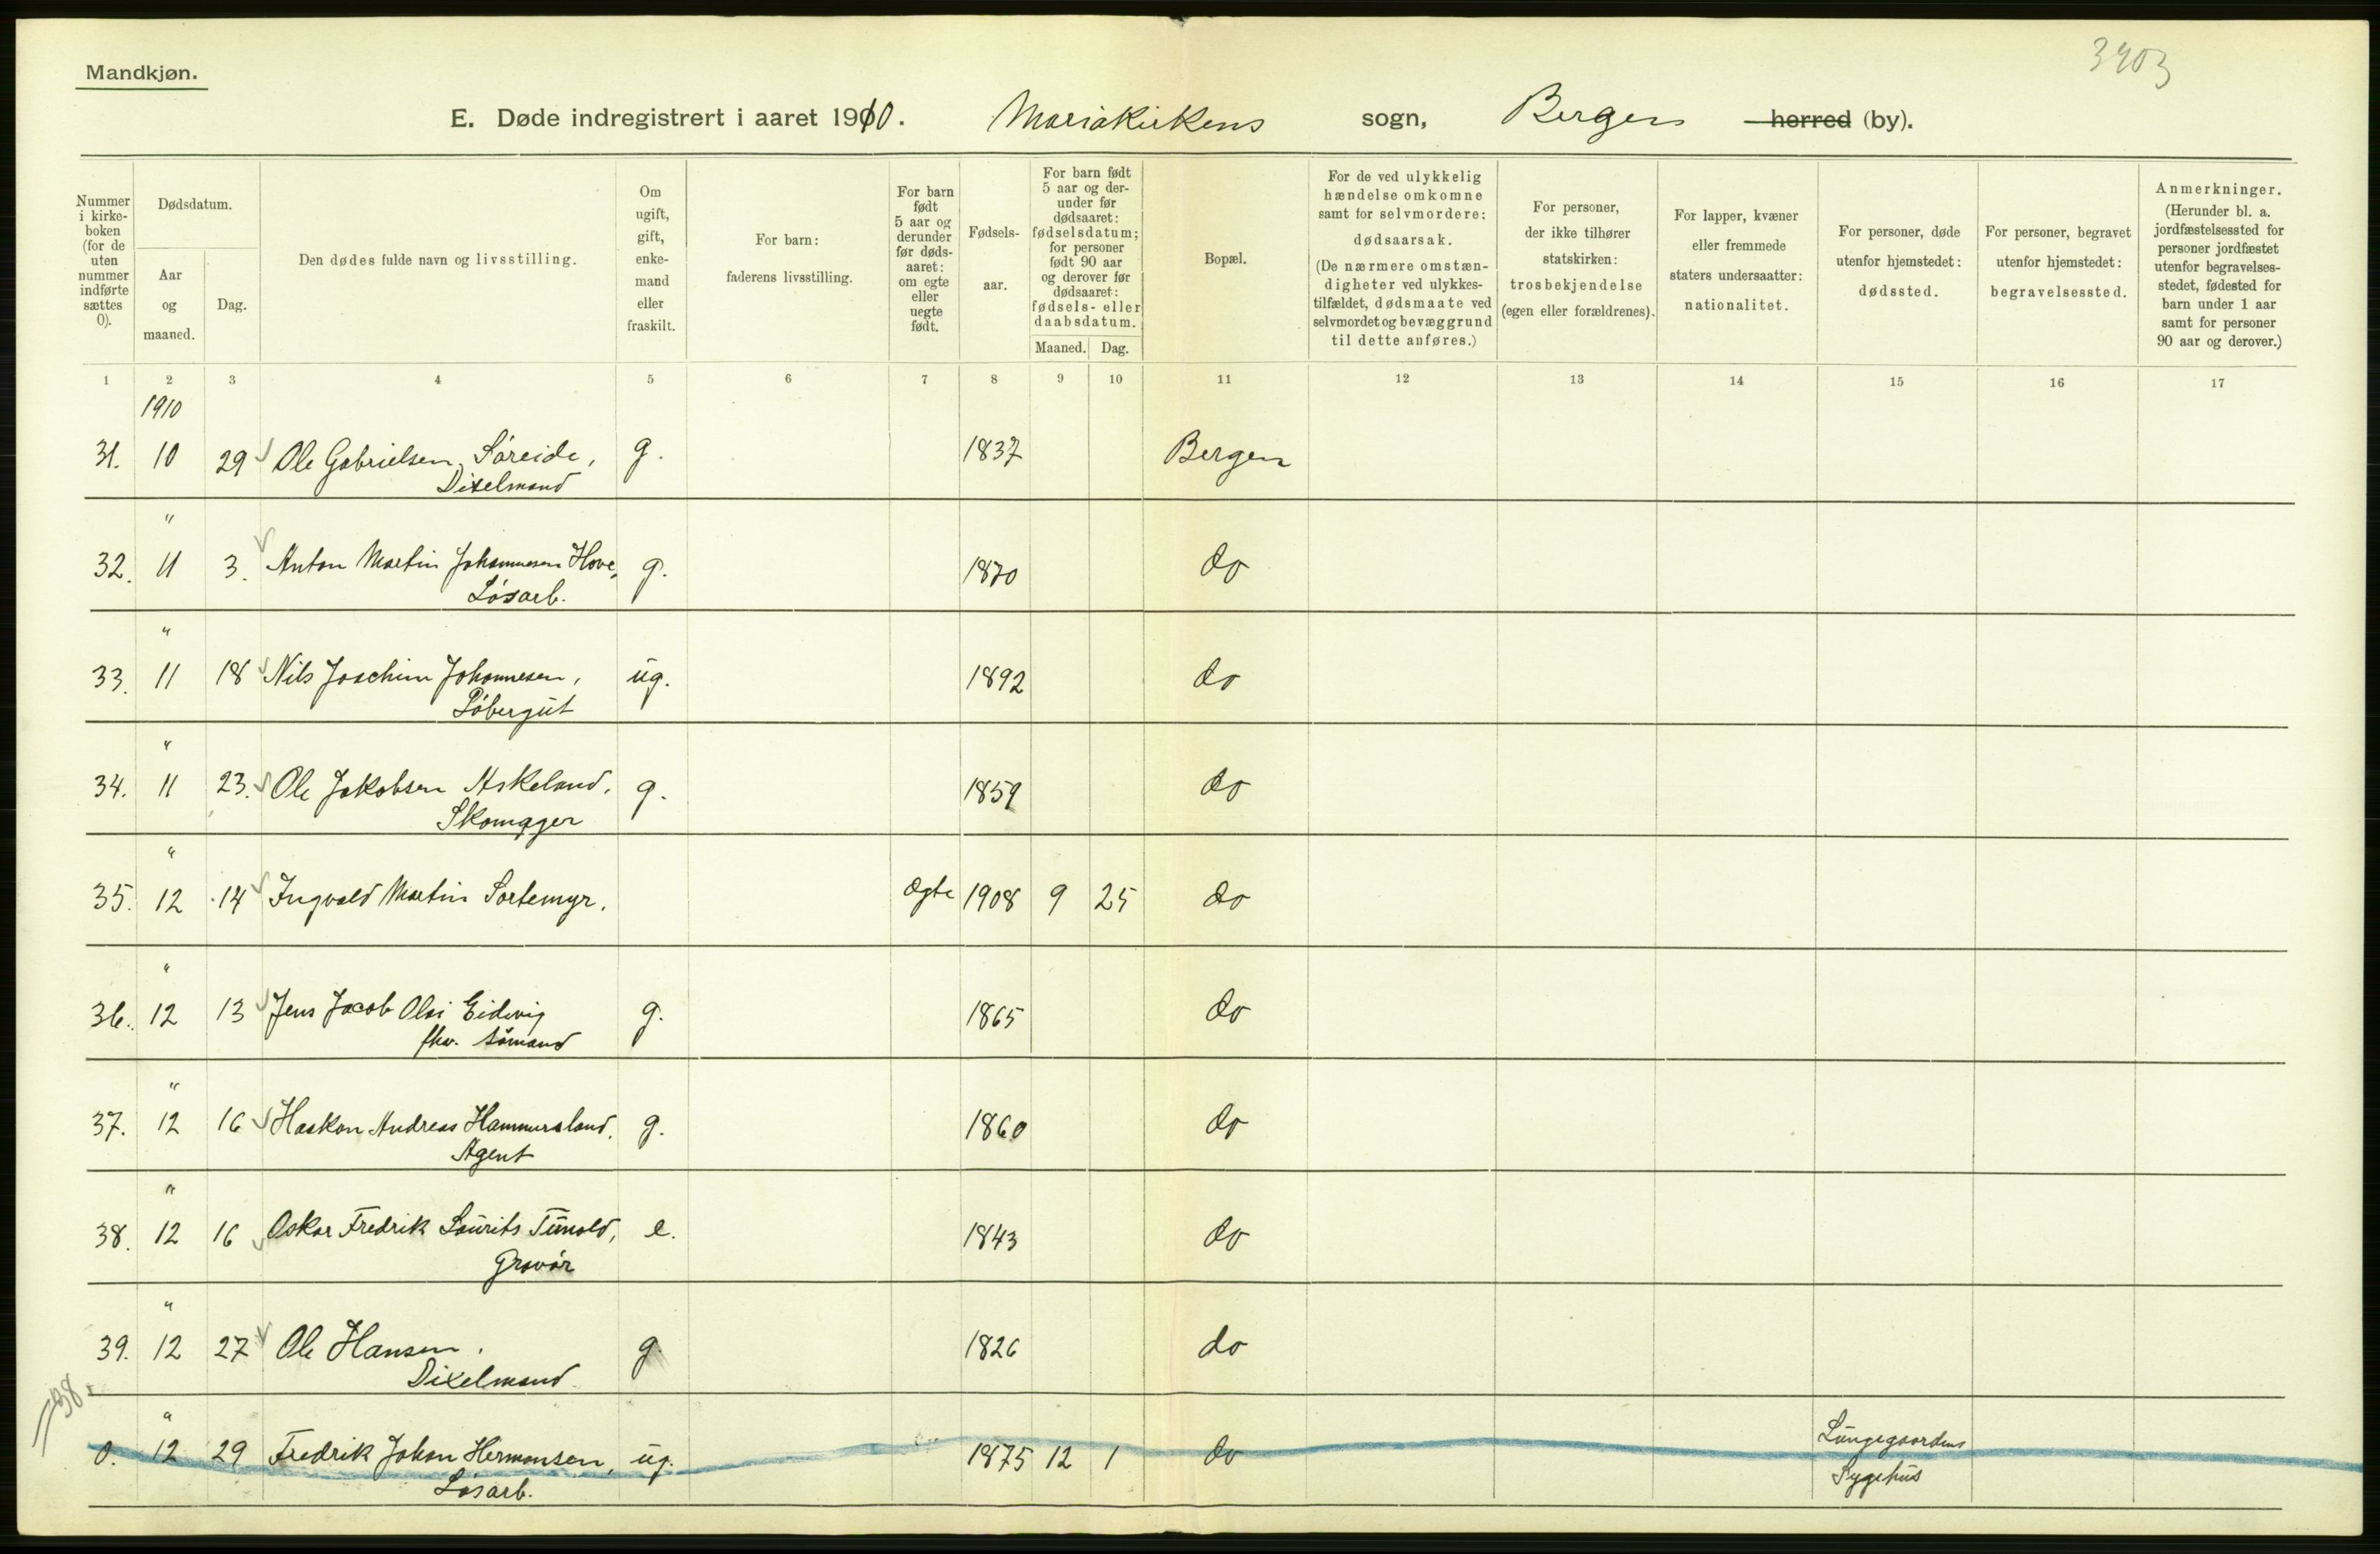 3403
Mandkjøn.
E. Døde indregistrert i aaret 1910. Mariakirkens sogn, Bergen herred (by).
Nummer i kirkeboken (for de uten nummer indførte sættes 0).
Dødsdatum.
Aar og maaned.
Dag.
Den dødes fulde navn og livsstilling.
Om ugift, gift, enkemand eller fraskilt.
For barn: faderens livsstilling.
For barn født 5 aar og derunder før dødsaaret: om egte eller uegte født.
Fødselsaar.
For barn født 5 aar og derunder før dødsaaret: fødselsdatum; for personer født 90 aar og derover før dødsaaret: fødsels- eller daabsdatum.
Maaned. Dag.
Bopæl.
For de ved ulykkelig hændelse omkomne samt for selvmordere: dødsaarsak. (De nærmere omstændigheter ved ulykkestilfældet, dødsmaate ved selvmordet og bevæggrund til dette anføres.)
For personer, der ikke tilhører statskirken: trosbekjendelse (egen eller forældrenes).
For lapper, kvæner eller fremmede staters undersaatter: nationalitet.
For personer, døde utenfor hjemstedet: dødssted.
For personer, begravet utenfor hjemstedet: begravelsessted.
Anmerkninger. (Herunder bl. a. jordfæstelsessted for personer jordfæstet utenfor begravelsesstedet, fødested for barn under 1 aar samt for personer 90 aar og derover.)
1 2 3 4 5 6 7 8 9 10 11 12 13 14 15 16 17
1910
31. 10 29 Ole Gabrielsen Søreide, g. 1837 Bergen
Dixelmand
"
32. 11 3. Anton Martin Johannesen Hove, g. 1870 do
Løsarb.
"
33. 11 18 Nils Joachim Johannesen, ug. 1892 do
Løbergut
"
34. 11 23. Ole Jakobsen Askeland, g. 1859 do
Skomager
"
35. 12 14 Ingvald Martin Sortemyr. Ægte 1908 9 25 do
"
36. 12 13 Jens Jacob Olai Eidsvig g. 1865 do
fhv. sømand
"
37. 12 16 Haakon Andreas Hammersland, g. 1860 do
Agent
"
38. 12 16 Oskar Fredrik Laurits Tunold, e. 1843 do
Gravør
"
39. 12 27 Ole Hansen, g. 1826 do
Dixelmand
"
0. 12 29 Fredrik Johan Hermansen, ug. 1875 12 1 do Lungegaardens
Løsarb. Sygehus